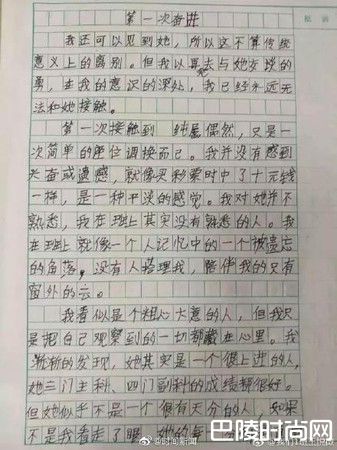 第一次奋进
我还可以见到她，所以这不算传统
意义上的离别。但我以再去与她交谈的
勇，在我的意识的深处，我已经永远无
法和她接触。
第一次接触到 纯属偶然，只是一
次简单的座位调换而已。我并没有感到
兴奋或遗憾，就像买彩票时中了十元钱
一样，是一种平淡的感觉。我对她并不
熟悉，我在班上其实没有熟悉的人。我
在班上就像一个人记忆中的一个被遗忘
的角落，没有人搭理我，陪伴我的只有
窗外的云。
我看似是个粗心大意的人，但我只
是把自己观察到的一切都藏在心里。我
渐渐的发现，她其实是一个很上进的人，
她三门主科、四门副科的成绩都很好。
但她似乎不是一个很有天分的人，如果
不是我看走了眼，她的每一分
巴陵时尚网
@时间新闻